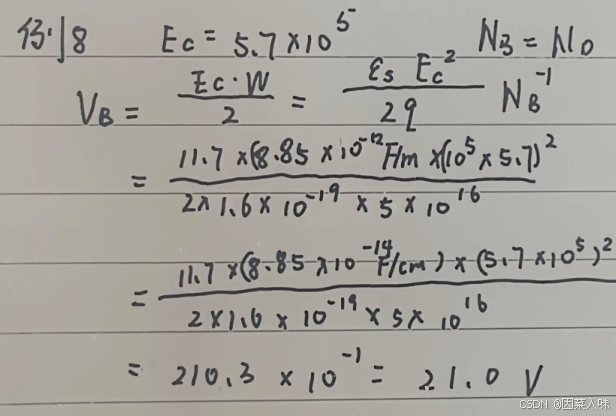 例8 Ec = 5.7×10⁵ N_B = N_D
V_B = Ec·W / 2 = εs Ec² / 2q N_B⁻¹
= 11.7 × (8.85 × 10⁻¹² F/m × (10⁵ × 5.7)² / 2 × 1.6 × 10⁻¹⁹ × 5 × 10¹⁶
= 11.7 × (8.85 × 10⁻¹⁴ F/cm) × (5.7 × 10⁵)² / 2 × 1.6 × 10⁻¹⁹ × 5 × 10¹⁶
= 210.3 × 10⁻¹ = 21.0 V
CSDN @因菜人味